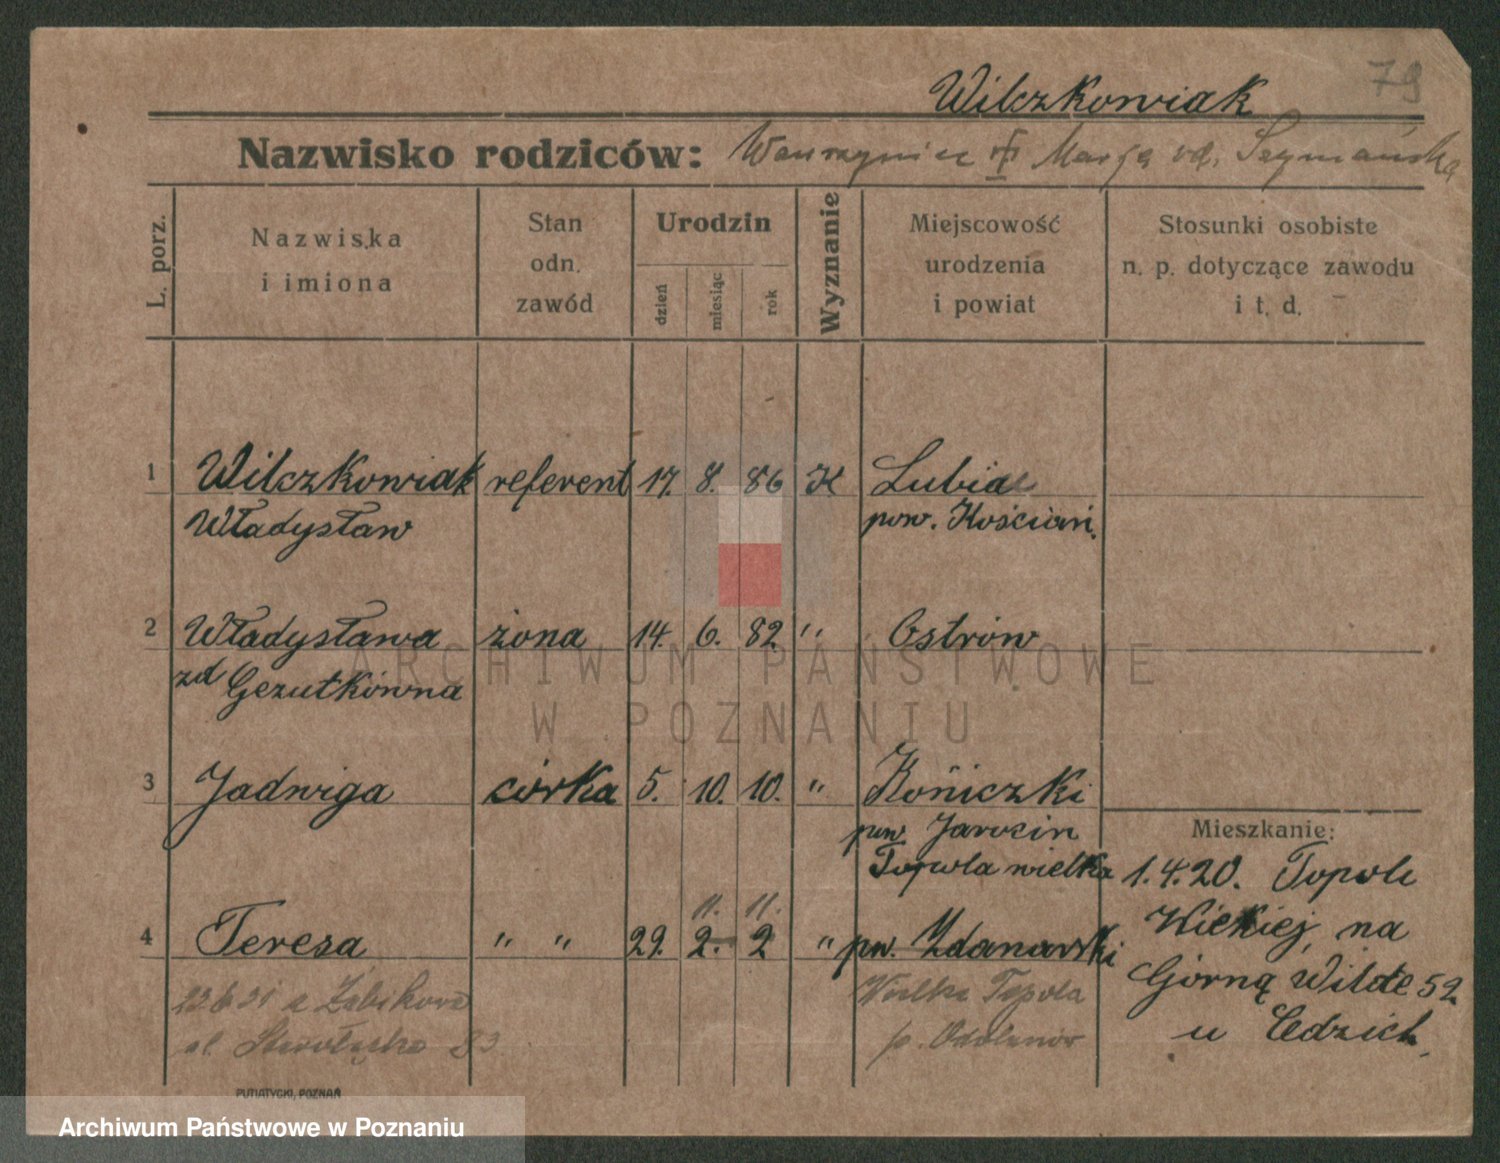 79
Wilczkowiak
Nazwisko rodziców: Wawrzyniec Marja Szymańska
L. porz.
Nazwiska
i imiona
Stan
odn.
zawód
Urodzin
dzień
miesiąc
rok
Wyznanie
Miejscowość
urodzenia
i powiat
Stosunki osobiste
n. p. dotyczące zawodu
i t. d.
1 Wilczkowiak referent 17. 8. 86 K Lubia
Władysław pow. Kościan.
2 Władysława żona 14. 6. 82 " Ostrów
zd Gezutkówna
3 Jadwiga córka 5. 10. 10. " Koniczki
pow. Jarocin
Topola wielka
11. 11.
4 Teresa " " 29. 2. 2 " pw. Zdanowski
Wielka Topola
p. Odolanów
Mieszkanie:
1.4.20. Topoli
Wielkiej, na
Górną Wilde 52
u Cedzich
22.6.31 z Żabikowa
ul. 83
PUTIATYCKI, POZNAŃ
ARCHIWUM PAŃSTWOWE
W POZNANIU
Archiwum Państwowe w Poznaniu